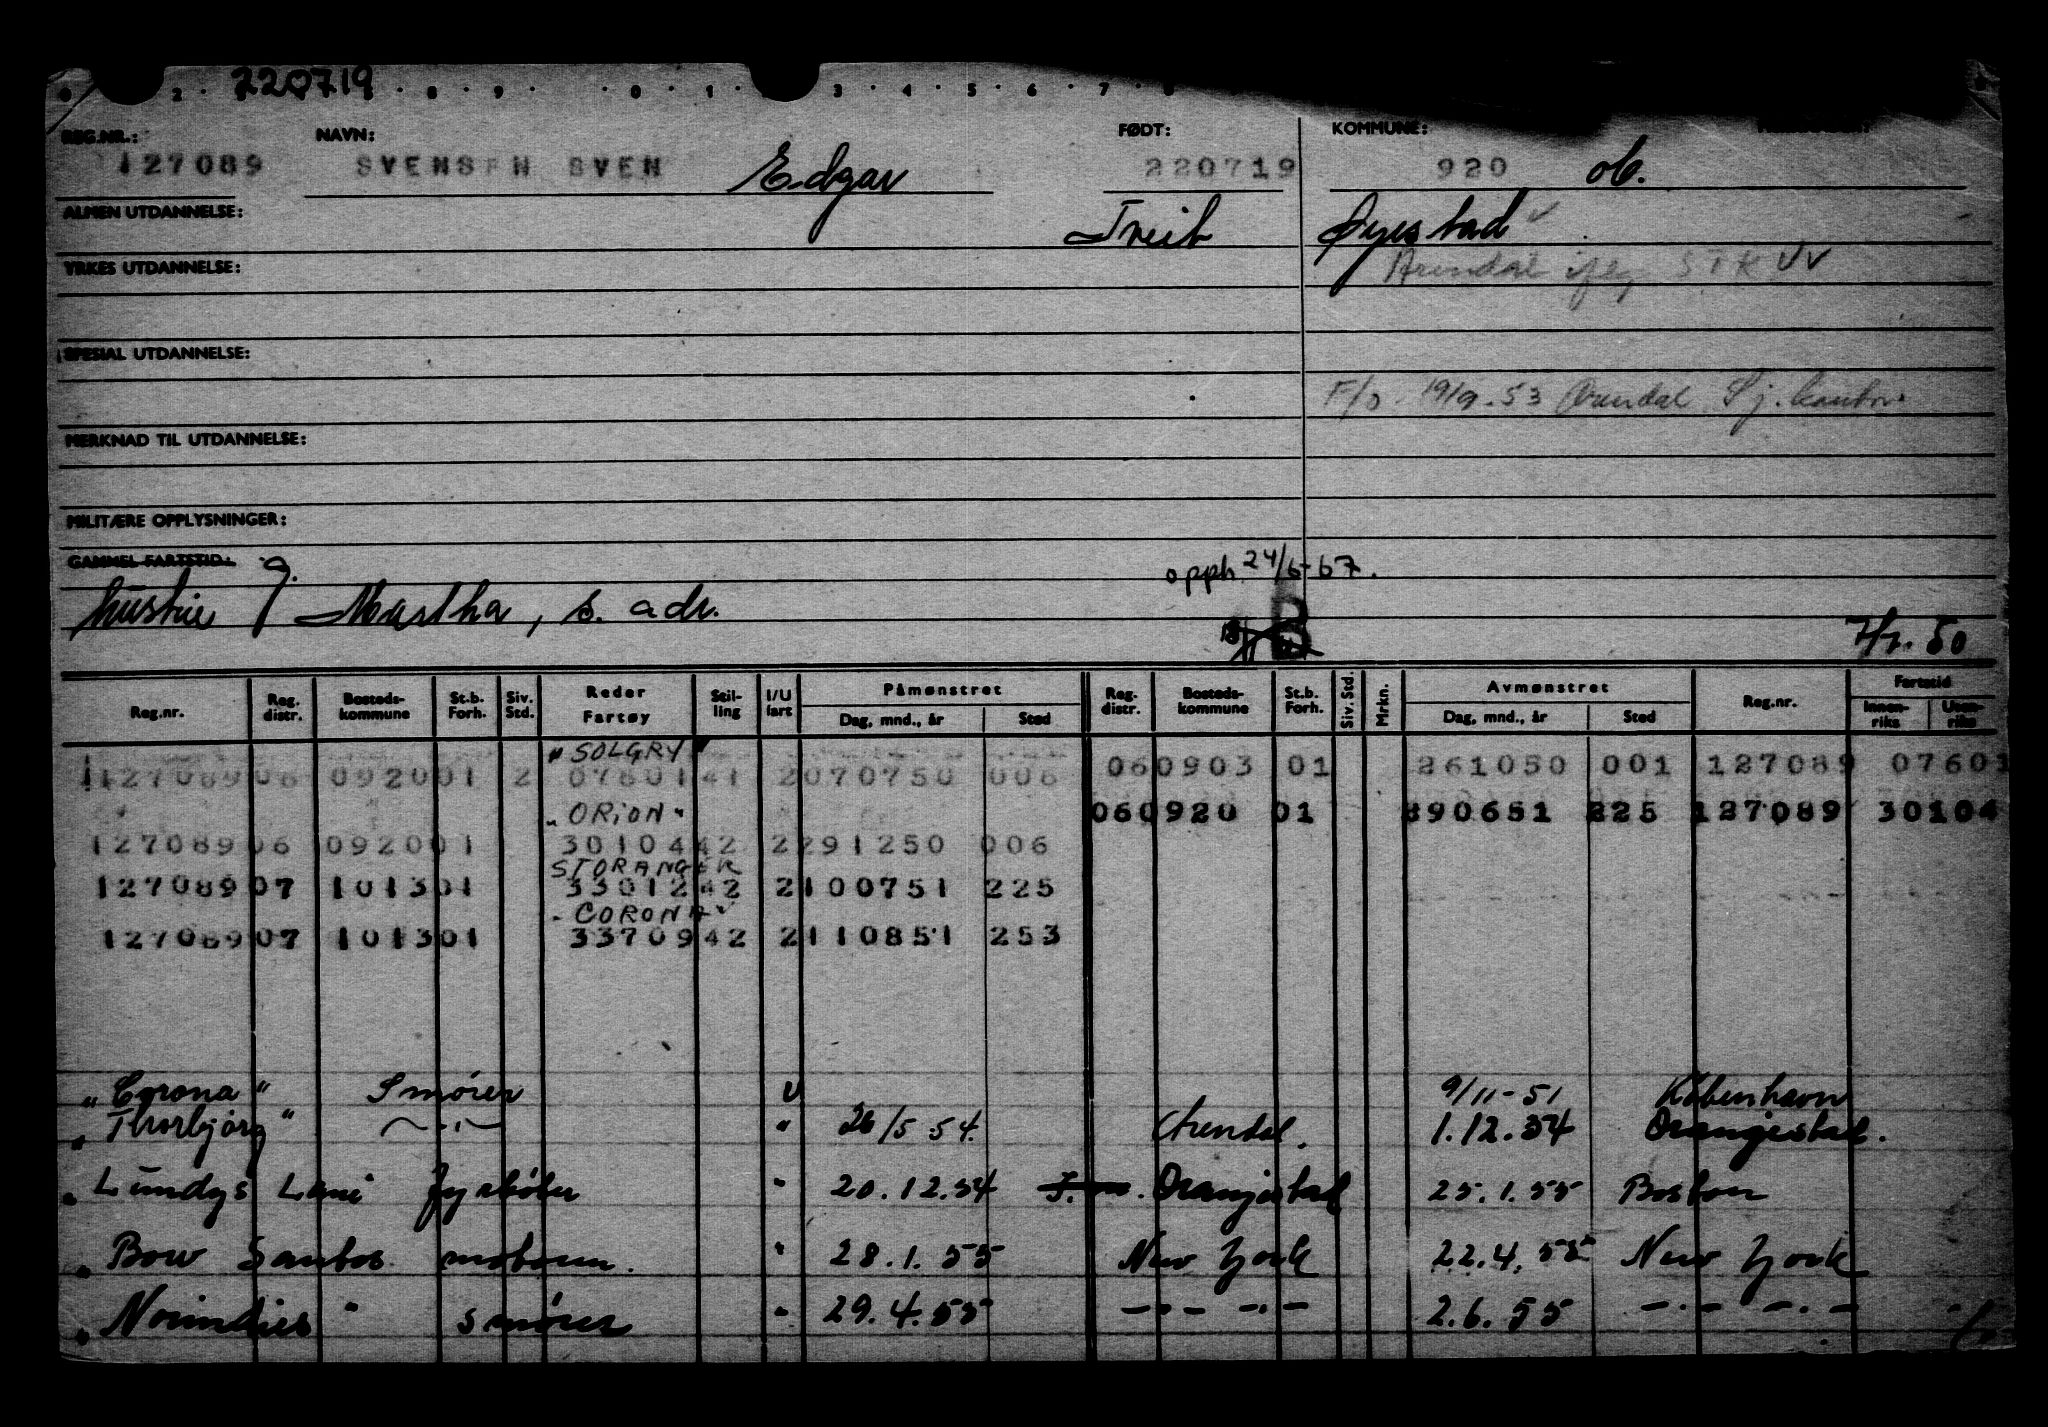 220719
REG.NR.: NAVN: FØDT: KOMMUNE:
127089 SVENSEN SVEN Edgar 220719 920 ob.
ALMEN UTDANNELSE: Øyestad
YRKES UTDANNELSE: Arendal
SPESIAL UTDANNELSE:
F/O 19/9-53 Arendal Sj.kontor
MERKNAD TIL UTDANNELSE:
MILITÆRE OPPLYSNINGER:
GAMMEL FARTSTID: g. opph 24/6-67.
hustru Martha, s. adr. B 7/7.50
Reg.nr. Reg. distr. Bosteds-kommune St.b. Forh. Siv. Std. Reder Fartøy Stil-ling I/U fart Påmønstret Dag, mnd., år Sted Reg. distr. Bosteds-kommune St.b. Forh. Siv. Std. Mrkn. Avmønstret Dag, mnd., år Sted Reg.nr. Fartstid Innen-riks Uten-riks
"SOLGRY"
127089 06 0920 01 2 07601 41 2 070750 006 06 0903 01 261050 001 127089 07601
"ORION" 06 0920 01 290651 225 127089 30104
127089 06 0920 01 30104 42 2 291250 006
STORANGER
127089 07 1013 01 33012 42 2 100751 225
"CORONA"
127089 07 1013 01 33709 42 2 110851 253
"Corona" Smører U 9/11-51 København
"Thorbjørg" — " — " 26/5 54. Arendal. 1.12.54 Oranjestad.
" Lundys Lane fyrbøter " 20.12.54 Oranjestad 25.1.55 Boston
" Bow Santos motorm. " 28.1.55 New York 22.4.55 New York
" Norindies " smører " 29.4.55 — " — — " — 2.6.55 — " — — " —